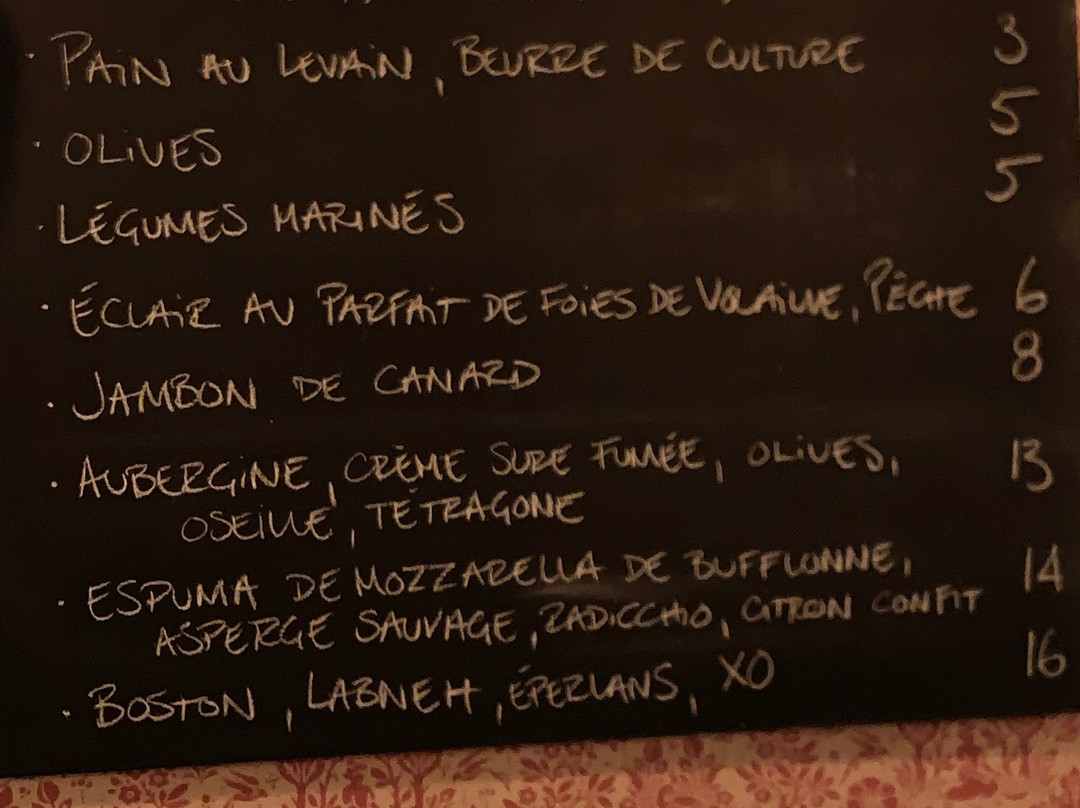 · PAIN AU LEVAIN, BEURRE DE CULTURE 3
· OLIVES 5
· LÉGUMES MARINÉS 5
· ÉCLAIR AU PARFAIT DE FOIES DE VOLAILLE, PÊCHE 6
· JAMBON DE CANARD 8
· AUBERGINE, CRÈME SURE FUMÉE, OLIVES, 13
OSEILLE, TÉTRAGONE
· ESPUMA DE MOZZARELLA DE BUFFLONNE, 14
ASPERGE SAUVAGE, RADICCHIO, CITRON CONFIT
· BOSTON, LABNEH, ÉPERLANS, XO 16